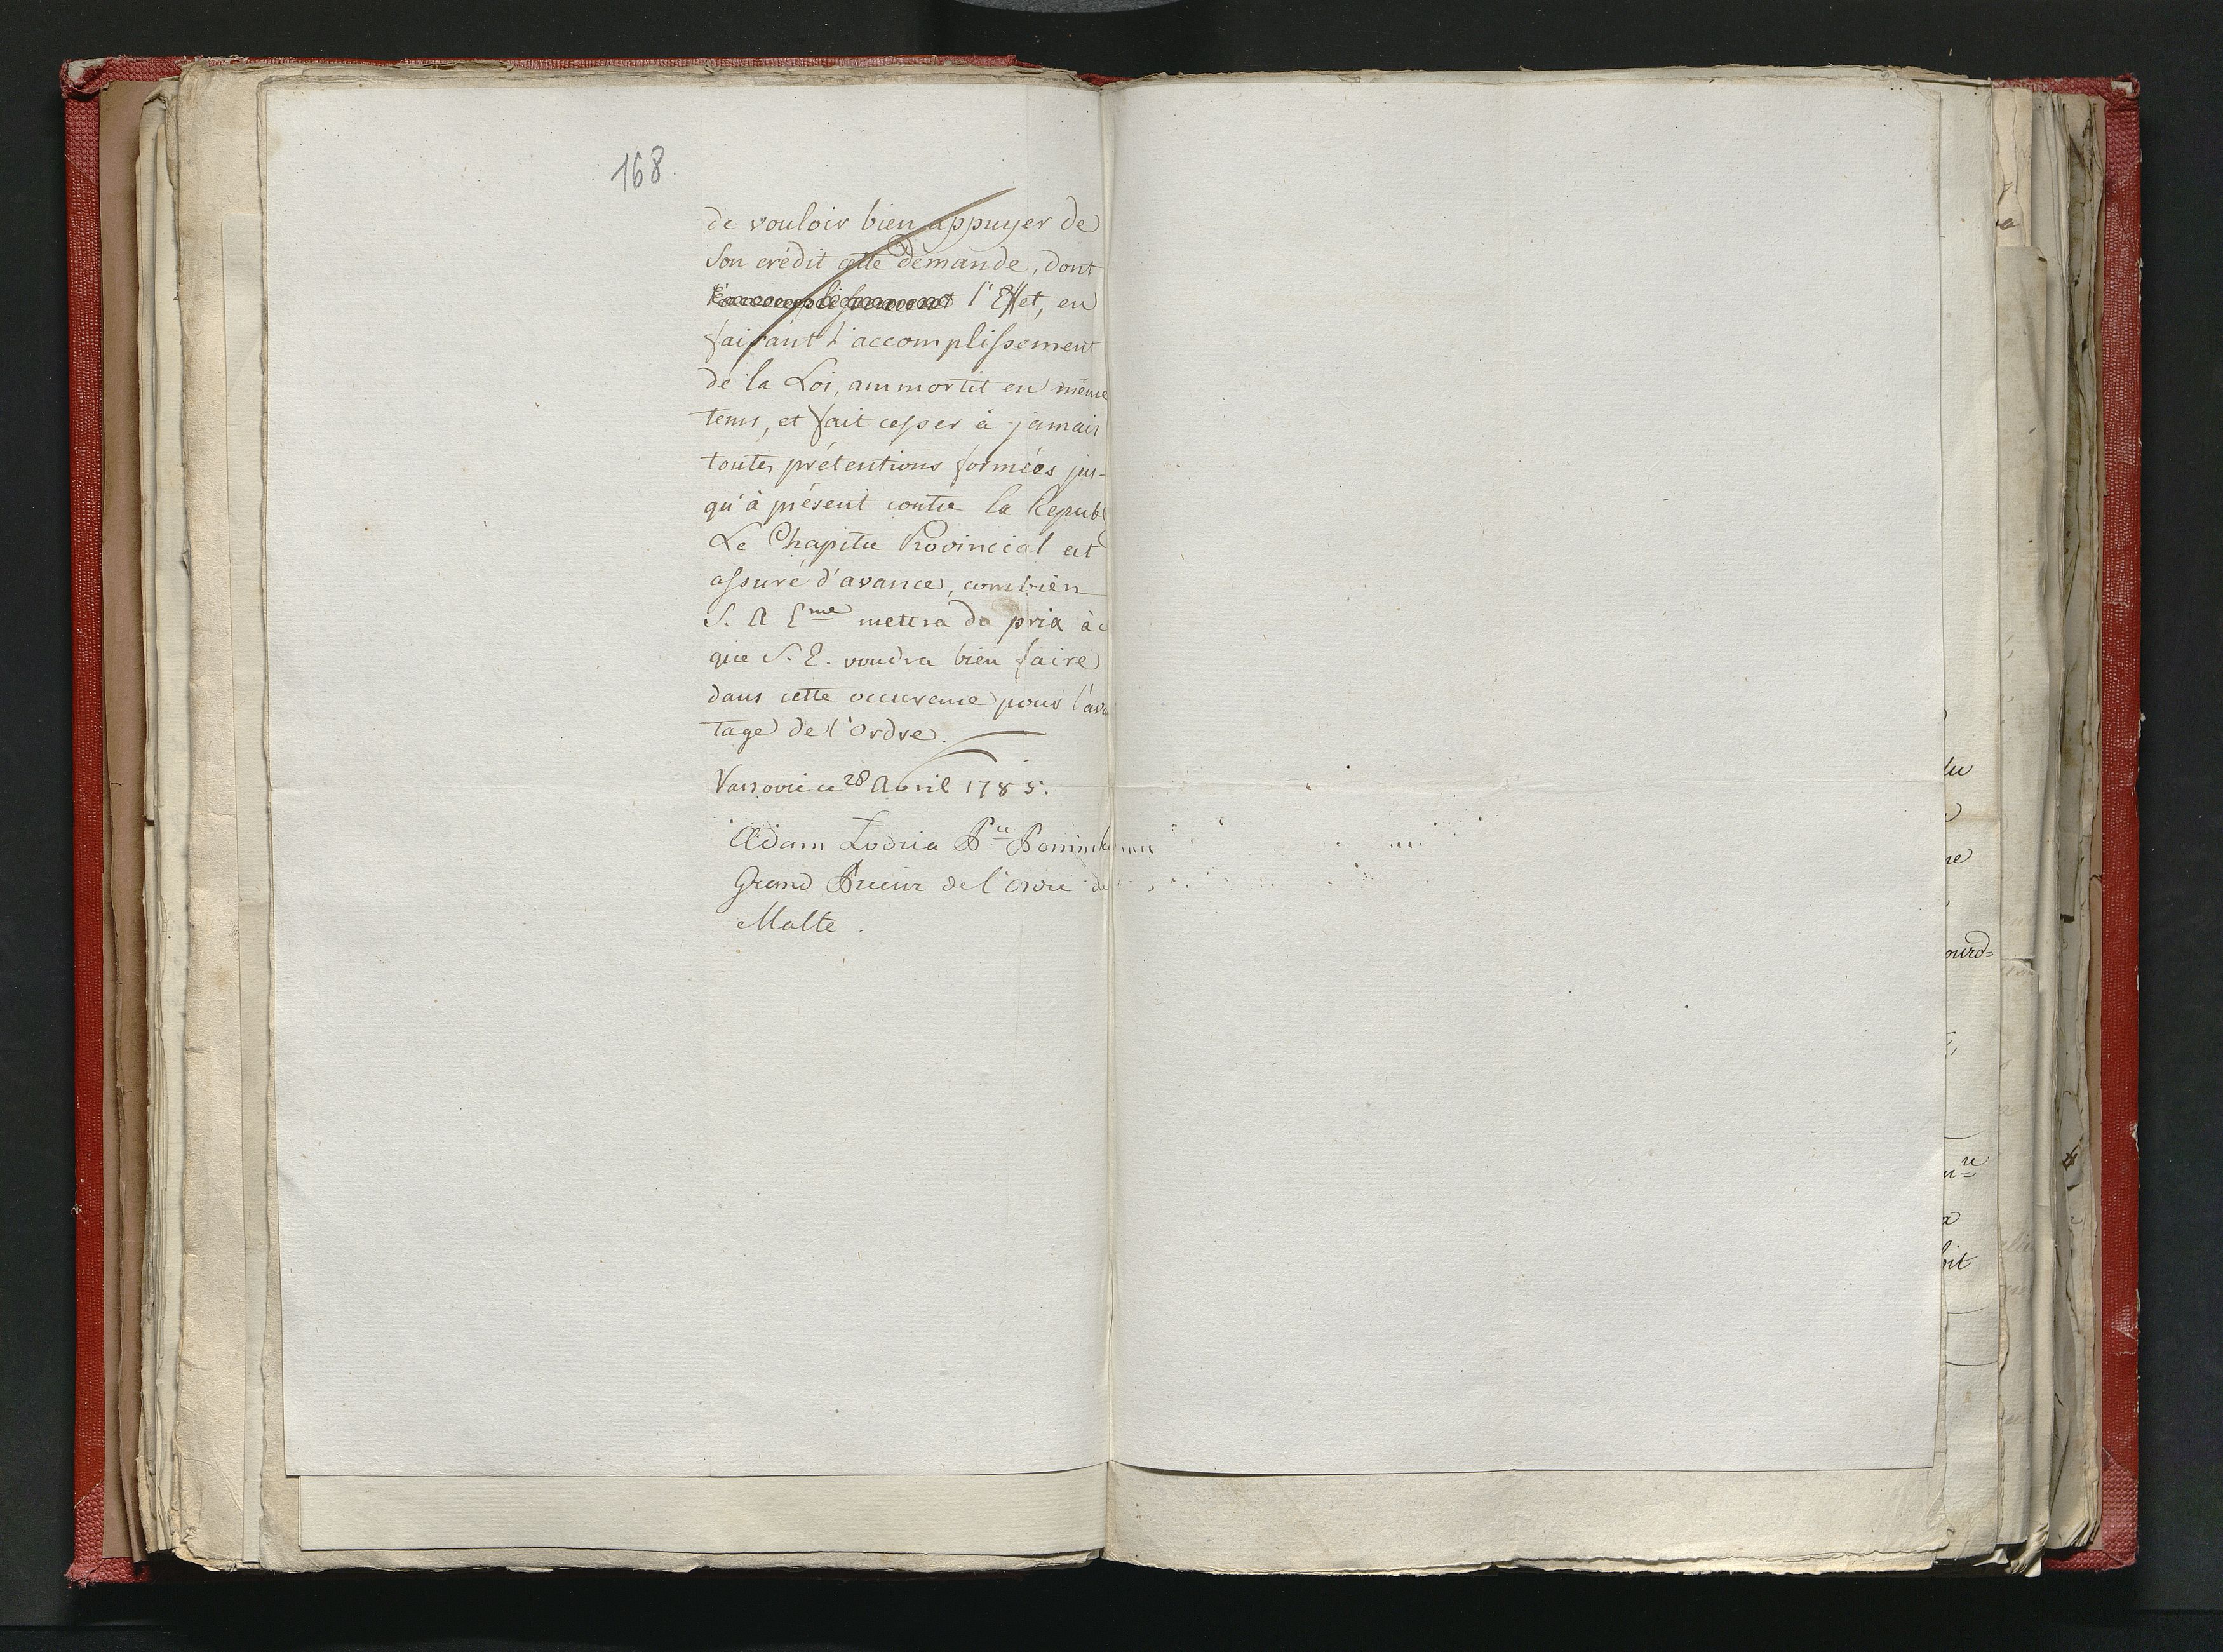 168.
de vouloir bien appuyer de
son crédit cette demande, dont
l'accomplissement l'Effet, en
faisant l'accomplissement
de la Loi, ammortit en même
tems, et fait cesser à jamais
toutes prétentions formées jus-
qu'à présent contre la Republ
Le Chapitre Provincial est
assuré d'avance, combien
S. A Eme mettra de prix à c
que S. E. voudra bien faire
dans cette occurence pour l'ava
tage de l'Ordre.
Varsovie ce 28 Avril 1785.
Adam Lodzia Pce
Grand Prieur de l'ordre de
Malte.